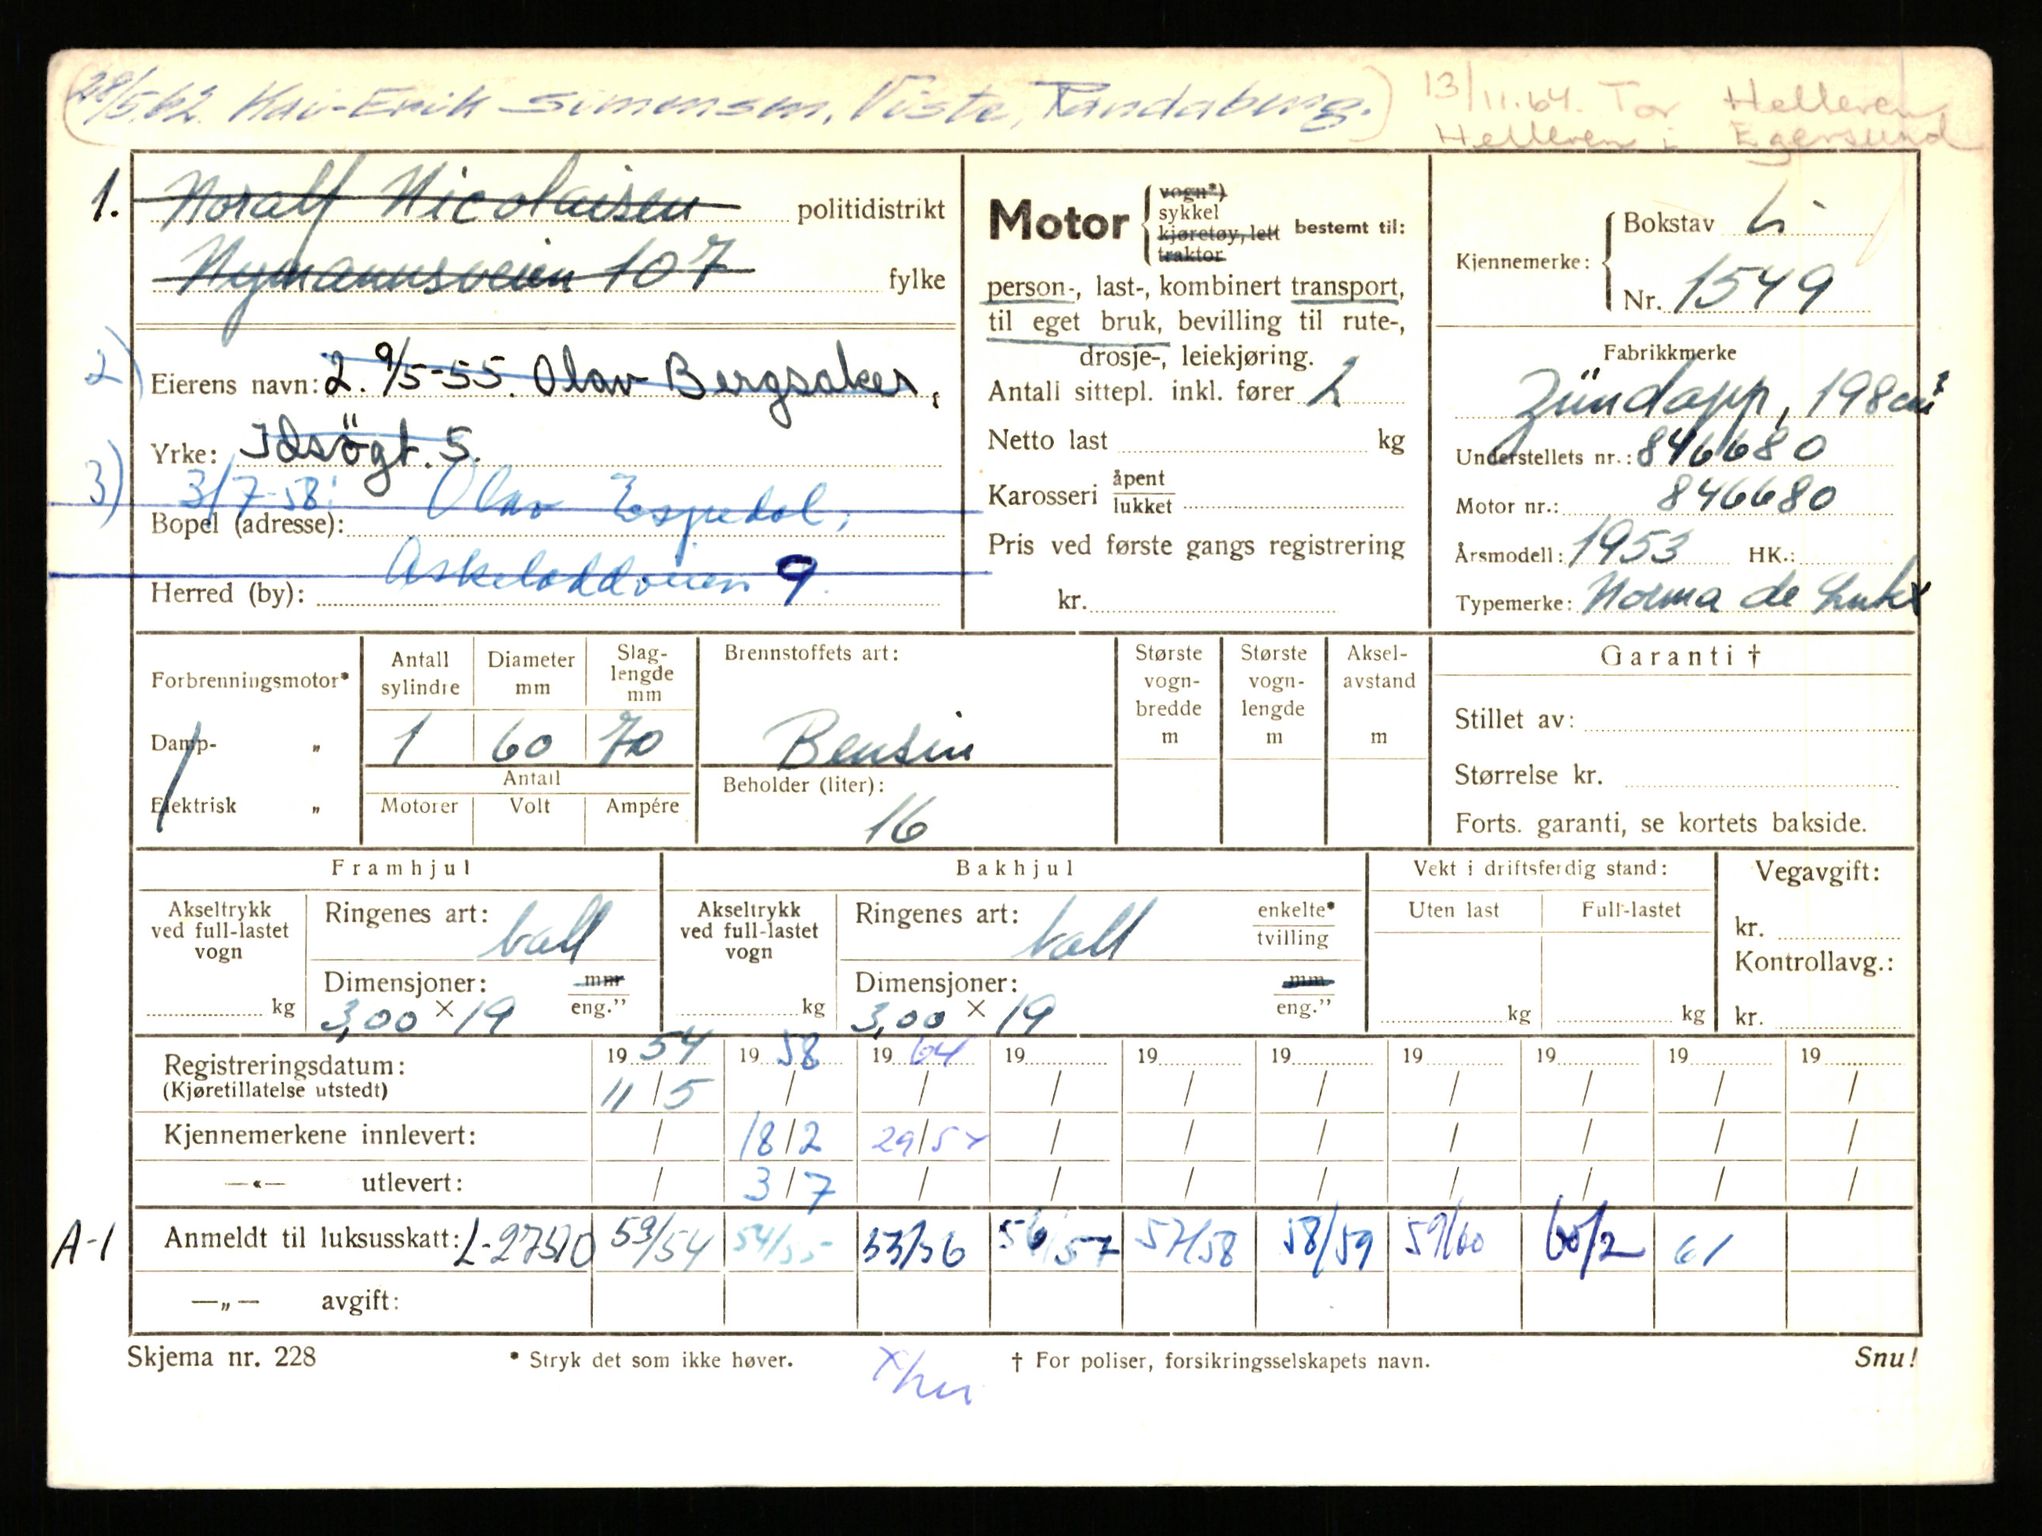 (28/5.62. Kai-Erik Simensen, Viste, Randaberg.) 13/11.64. Tor Helleren
Helleren i Egersund
1. Noralf Nicolaisen politidistrikt
Nymannsveien 107 fylke
2) Eierens navn: 2. 9/5-55. Olav Bergsaker,
Yrke: Idsøgt. 5.
3) 3/7-58: Olav Espedal,
Bopel (adresse):
Askeladdveien 9.
Herred (by):
Motor { vogn*)
sykkel
kjøretøy, lett
traktor
bestemt til:
person-, last-, kombinert transport,
til eget bruk, bevilling til rute-,
drosje-, leiekjøring.
Antall sittepl. inkl. fører 2
Netto last kg
Karosseri åpent
lukket
Pris ved første gangs registrering
kr.
Kjennemerke: { Bokstav L
Nr. 1549
Fabrikkmerke
Zündapp, 198cm³
Understellets nr.: 846680
Motor nr.: 846680
Årsmodell: 1953 HK.:
Typemerke: Norma de Lux
Forbrenningsmotor*
Damp- „
Elektrisk „
Antall sylindre Diameter mm Slaglengde mm
1 60 70
Antall
Motorer Volt Ampére
Brennstoffets art:
Bensin
Beholder (liter):
16
Største vogn-bredde m
Største vogn-lengde m
Aksel-avstand m
Garanti †
Stillet av:
Størrelse kr.
Forts. garanti, se kortets bakside.
Framhjul
Akseltrykk ved full-lastet vogn kg
Ringenes art: ball
Dimensjoner: mm
3,00 × 19 eng."
Bakhjul
Akseltrykk ved full-lastet vogn kg
Ringenes art: ball enkelte*
tvilling
Dimensjoner: mm
3,00 × 19 eng."
Vekt i driftsferdig stand:
Uten last Full-lastet
kg kg
Vegavgift:
kr.
Kontrollavg.:
kr.
Registreringsdatum: 19 54 19 58 19 64 19 19 19 19 19 19 19
(Kjøretillatelse utstedt) 11/5 / / / / / / / / /
Kjennemerkene innlevert: / 18/2 29/5 x / / / / / / /
—«— utlevert: / 3/7 / / / / / / / /
A-1 Anmeldt til luksusskatt: L-27510 53/54 54/55 55/56 56/57 57/58 58/59 59/60 60/2 61
—„— avgift:
Skjema nr. 228 * Stryk det som ikke høver. † For poliser, forsikringsselskapets navn. Snu!